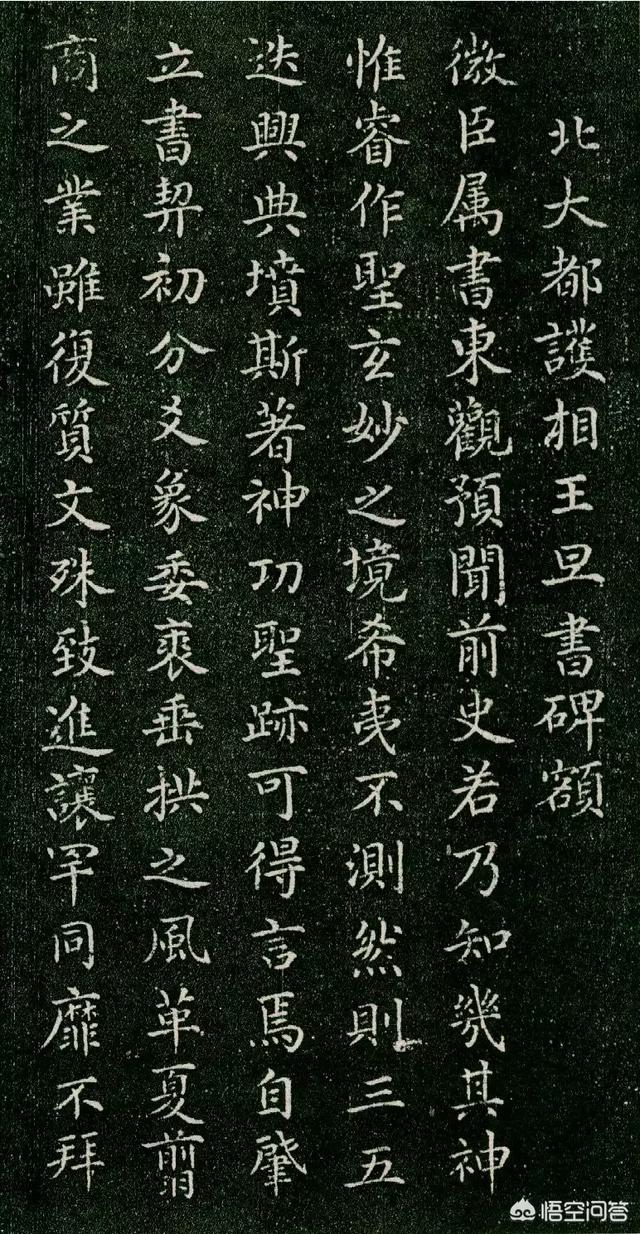 北大都護相王旦書碑額
微臣属書東觀預聞前史若乃知幾其神
惟睿作聖玄妙之境希夷不測然則三五
迭興典墳斯著神功聖跡可得言焉自肇
立書契初分爻象委裘垂拱之風革夏翦
商之業雖復質文殊致進讓罕同靡不拜
悟空问答